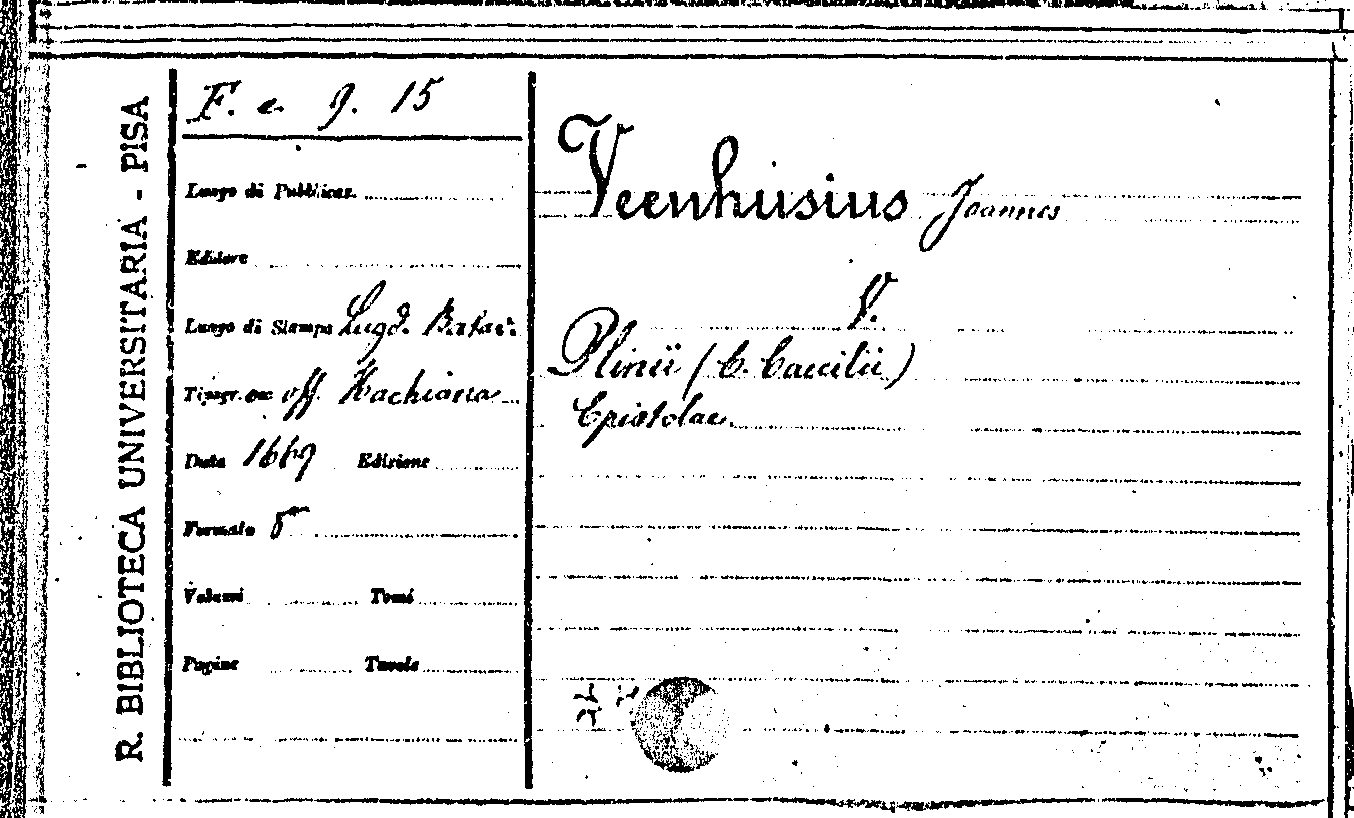 R. BIBLIOTECA UNIVERSITARIA - PISA
F. e. 9. 15
Luogo di Pubblicaz.
Editore
Luogo di Stampa Lugd. Batav.
Tipogr. ex off. Hachiana
Data 1669 Edizione
Formato 8°
Volumi Tomi
Pagine Tavole
Veenhusius Joannes
V.
Plinii (C. Caecilii)
Epistolae.